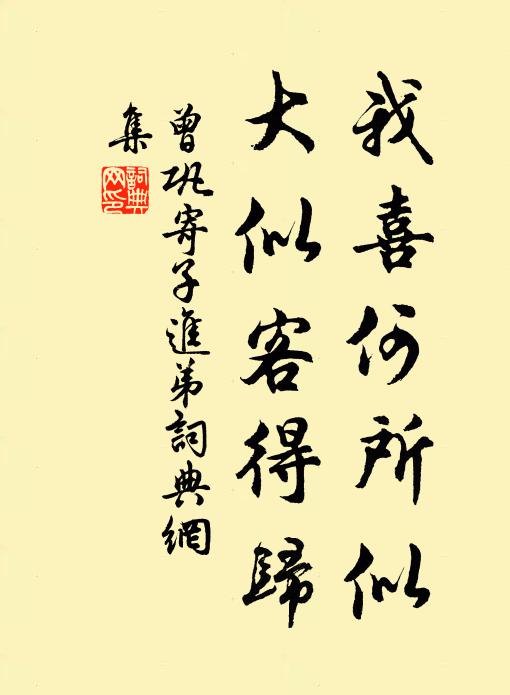 我喜何所似
大似客得歸
曾巩寄子進弟詞典網
集
詞典
网印